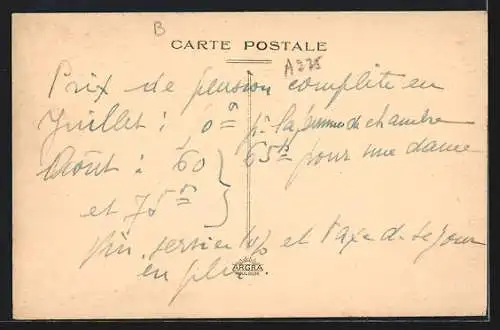 B
CARTE POSTALE
A275
Prix de pension complète en
Juillet : 0 pr la femme de chambre
Août : 60 65 pour une dame
et 75
Vin, service 10% et Taxe de séjour
en plus
ARGRA